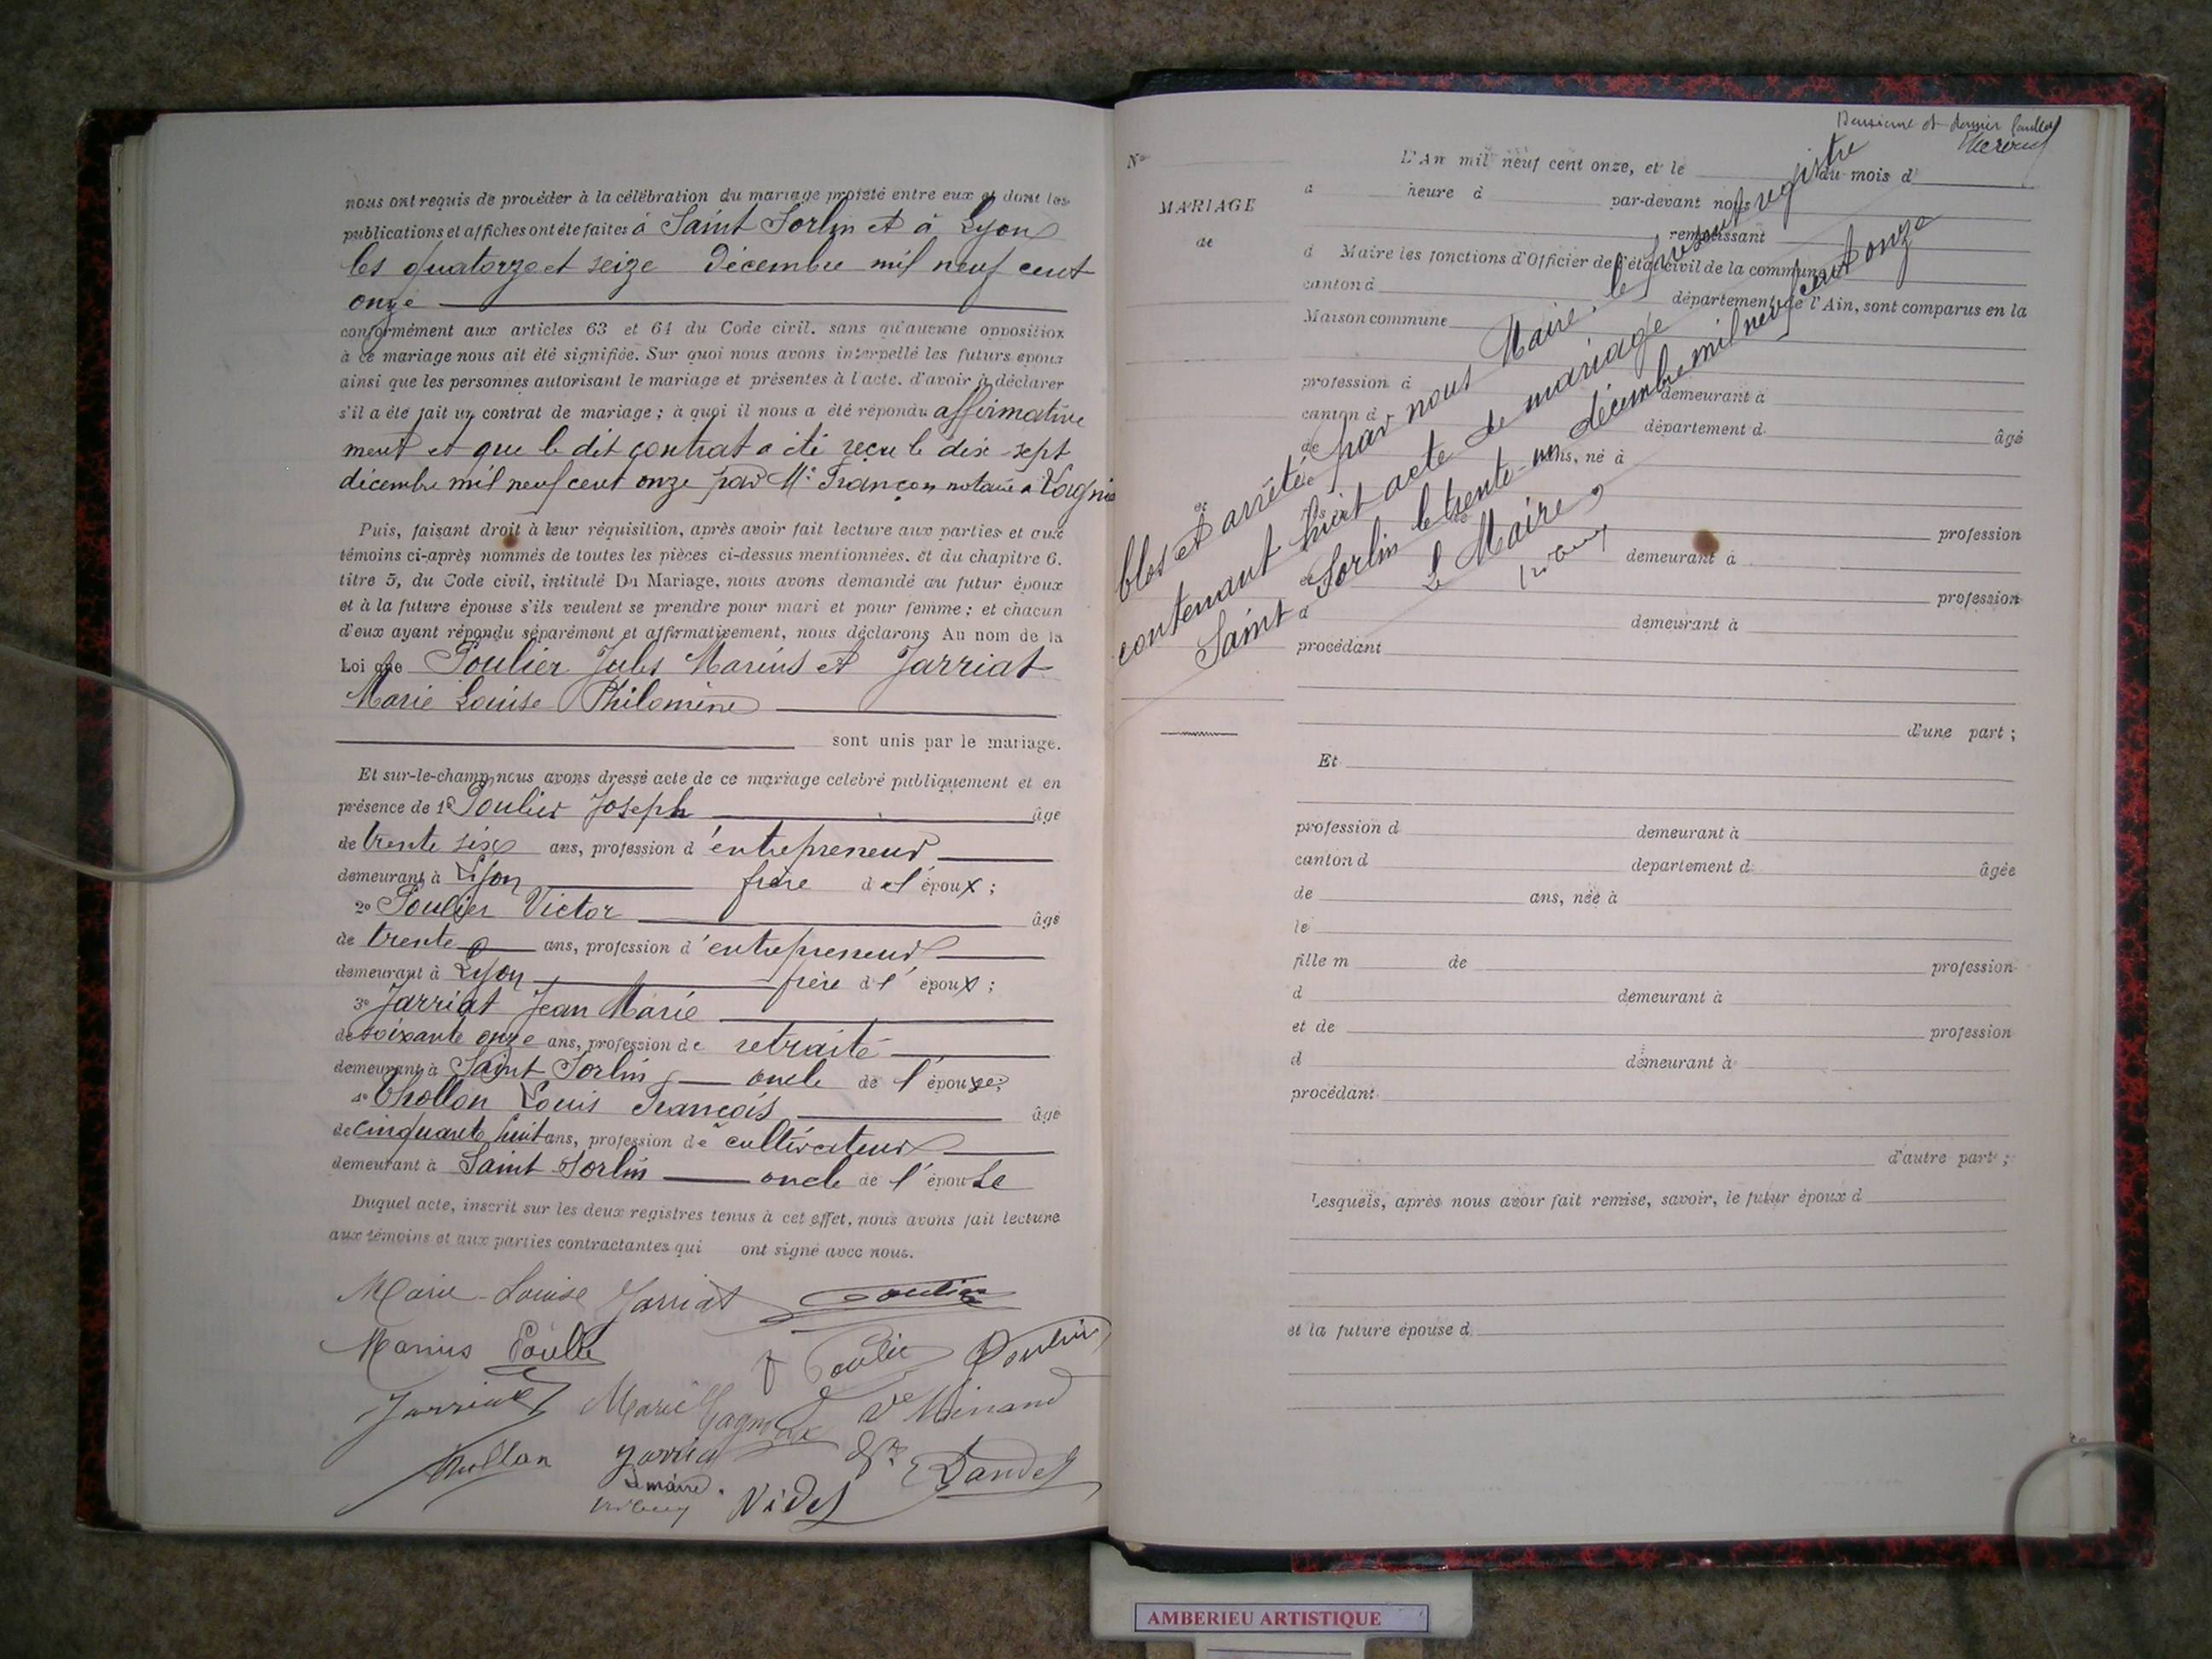 nous ont requis de procéder à la célébration du mariage projeté entre eux et dont les
publications et affiches ont été faites à Saint Sorlin et à Lyon
les quatorze et seize Décembre mil neuf cent
onze
conformément aux articles 63 et 64 du Code civil. sans qu'aucune opposition
à ce mariage nous ait été signifiée. Sur quoi nous avons interpellé les futurs époux
ainsi que les personnes autorisant le mariage et présentes à l'acte. d'avoir à déclarer
s'il a été fait un contrat de mariage ; à quoi il nous a été répondu affirmative
ment et que le dit contrat a été reçu le dix-sept
décembre mil neuf cent onze par Me Françon notaire à
Puis, faisant droit à leur réquisition, après avoir fait lecture aux parties et aux
témoins ci-après nommés de toutes les pièces ci-dessus mentionnées. et du chapitre 6.
titre 5, du Code civil, intitulé Du Mariage, nous avons demandé au futur époux
et à la future épouse s'ils veulent se prendre pour mari et pour femme ; et chacun
d'eux ayant répondu séparément et affirmativement, nous déclarons Au nom de la
Loi que Poulier Jules Marius et Jarriat
Marie Louise Philomène
sont unis par le mariage.
Et sur-le-champ nous avons dressé acte de ce mariage célébré publiquement et en
présence de 1° Poulier Joseph âgé
de trente six ans, profession d'entrepreneur
demeurant à Lyon frère de l'époux ;
2° Poulier Victor âgé
de trente ans, profession d'entrepreneur
demeurant à Lyon frère d l' époux ;
3° Jarriat Jean Marie
de soixante onze ans, profession de retraité
demeurant à Saint Sorlin oncle de l'épouse;
4° Chollon Louis François âgé
de cinquante huit ans, profession de cultivateur
demeurant à Saint Sorlin oncle de l'épouse
Duquel acte, inscrit sur les deux registres tenus à cet effet, nous avons fait lecture
aux témoins et aux parties contractantes qui ont signé avec nous.
Marie-Louise Jarriat Poulier
Marius Poulier J Poulier Poulier
Jarriat Marie Ve Minand
Chollon Jarriat
Le maire. Videl
Deuxième et dernier feuillet
N°
MARIAGE
de
L'An mil neuf cent onze, et le du mois d
à heure à par-devant nous
remplissant
d Maire les fonctions d'Officier de l'état civil de la commune
canton d département de l'Ain, sont comparus en la
Maison commune
profession d demeurant à
canton d département d âgé
de ans, né à
le
fils de profession
d demeurant à
et de profession
d demeurant à
procédant
d'une part ;
Clos et arrêté par nous Maire le présent registre
contenant huit acte de mariage
Saint Sorlin le trente-un décembre mil neuf cent onze
Le Maire,
Et
profession d demeurant à
canton d département d âgée
de ans, née à
le
fille m de profession
d demeurant à
et de profession
d demeurant à
procédant
d'autre part ;
Lesquels, après nous avoir fait remise, savoir, le futur époux d
et la future épouse d
AMBERIEU ARTISTIQUE